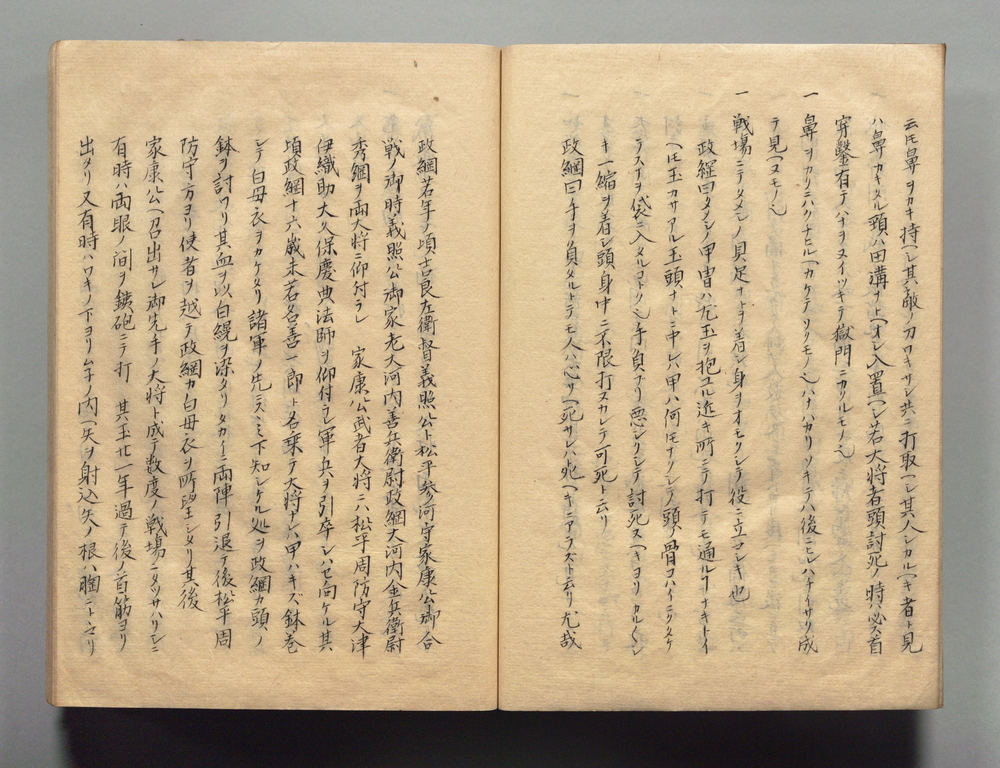 云圧鼻ヲカキ持ヘシ其敵ノ刀ワキサシ共ニ打取ヘシ其人シカルヘキ者ト見
ハ鼻カキタル頸ハ田溝ナトヘオシ入置ヘシ若大将者頭討死ノ時ハ必ス首
穿鑿有テハナヲヌイツキテ獄門ニカクルモノ也
一 鼻ヲカクニハクチヒルヘカケテソクモノ也ハナハカリソキテハ後ニ
テ見ヘヌモノ也
一 戦場ニテタメシノ具足ナトヲ着シ身ヲオモクシテ役ニ立マシキ也
政綱曰タメシノ甲冑ハ尤玉ヲ抱ユル近キ所ニテ打テモ通ルヿナキトイ
ヘ圧玉カサアル玉頭ナトニ中レハ甲ハ何圧ナクシテ頭ノ骨ヲハイニクタケ
テスナヲ袋ニ入タルコトク也手負フリ悪シクシテ討死スヘキヨリカルクシ
キ一縮ヲ着シ頭身中ニ不限打ヌカレテ可死ト云リ
政綱曰手ヲ負タルトテモ人ハ心サヘ死サレハ死ヘキニアラスト云リ尤哉
政綱若年ノ頃吉良左衛督義照公ト松平参河守家康公御合
戦ノ御時義照公御家老大河内善兵衛尉政綱大河内金兵衛尉
秀綱ヲ両大将ニ仰付ラレ 家康公武者大将ニハ松平周防守大津
伊織助大久保慶典法師ヲ仰付ラレ軍兵ヲ引卒シハセ向ケル其
頃政綱十六歳未若名善一郎ト名乗テ大将ナレハ甲ハキズ鉢巻
シテ白母衣ヲカケタリ諸軍ノ先ニスヽミ下知シケル処ヲ政綱カ頭ノ
鉢ヲ討ワリ其血ヲ以白縨ヲ染タリタカイニ両陣引退テ後松平周
防守方ヨリ使者ヲ越テ政綱カ白母衣ヲ所望シタリ其後
家康公ヘ召出サレ御先手ノ大将ト成テ数度ノ戦場ニタツサハリシニ
有時ハ両眼ノ間ヲ鉄砲ニテ打レ其玉廿一年過テ後ノ首筋ヨリ
出タリ又有時ハワキノ下ヨリムナ内ヘ矢ヲ射込矢ノ根ハ胸ニトマリ